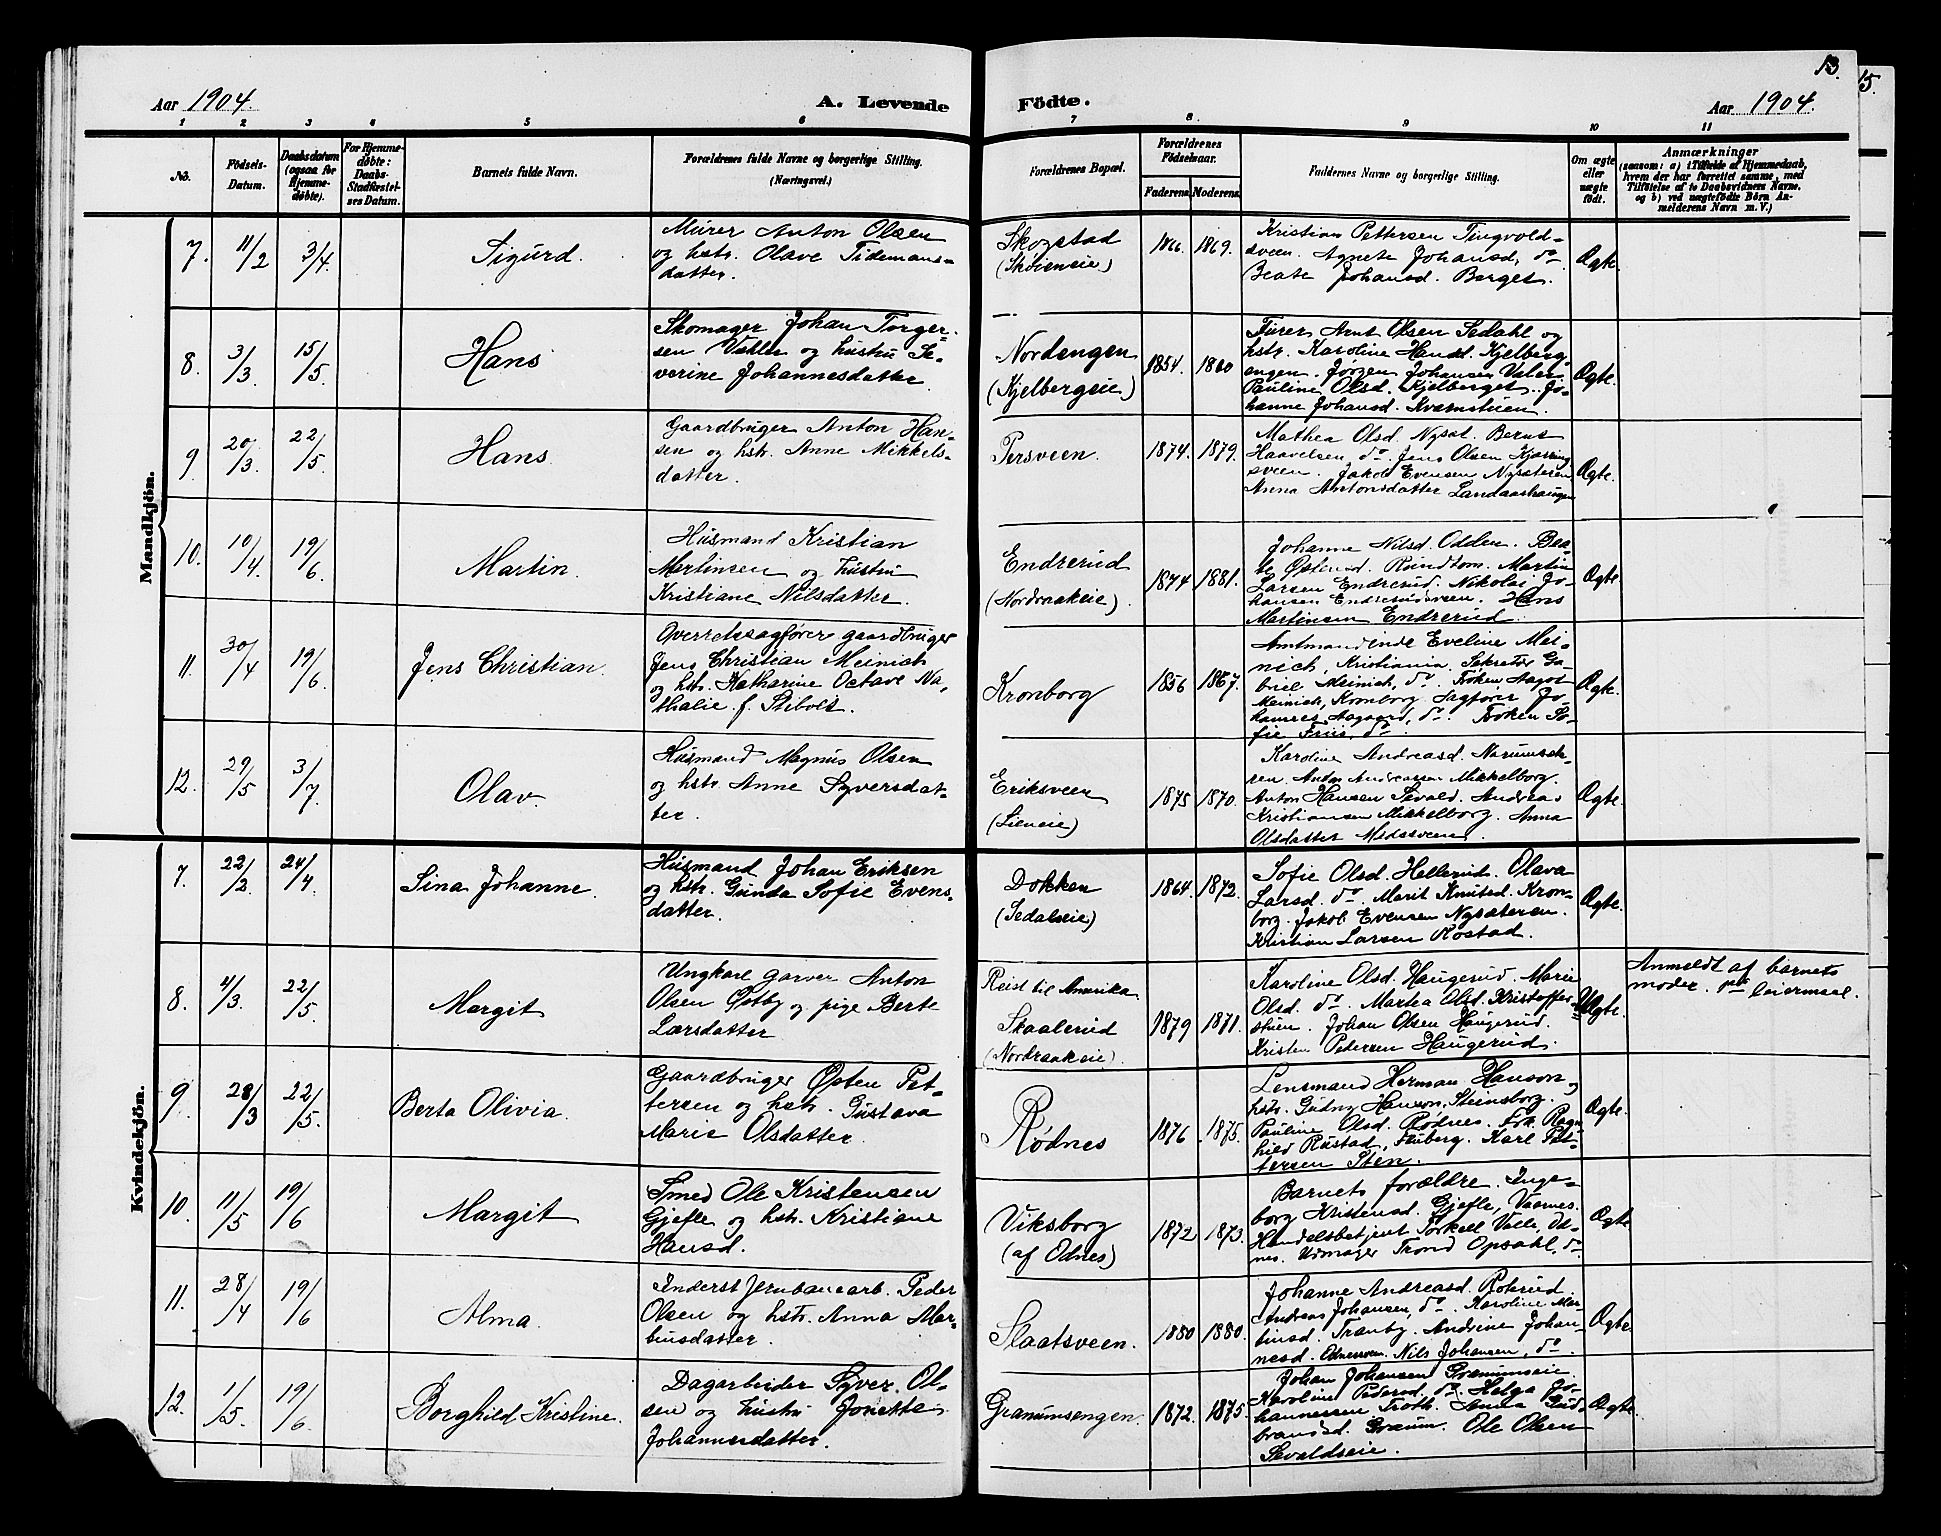 13.
15.
Aar 1904.
A. Levende Födte.
Aar 1904.
1 2 3 4 5 6 7 8. 9 10 11
No.
Födsels-
Datum.
Daabsdatum
(ogsaa for
Hjemme-
döbte).
For Hjemme-
døbte:
Daabs-
Stadfæstel-
ses Datum.
Barnets fulde Navn.
Forældrenes fulde Navne og borgerlige Stilling.
(Næringsvei.)
Forældrenes Bopæl.
Forældrenes
Födselsaar.
Faderens. Moderens.
Faddernes Navne og borgerlige Stilling.
Om ægte
eller
uægte
født.
Anmærkninger
(saasom: a) i Tilfælde af Hjemmedaab,
hvem der har forrettet samme, med
Tilföielse af to Daabsvidners Navne,
og b) ved uægtefödte Börn An-
melderens Navn m. V.)
Mandkjön.
7. 11/2 3/4. Sigurd.
Murer Anton Olsen
og hstr. Olave Tidemans-
datter.
Skogstad
(Skøieneie)
1866. 1869.
Kristian Pettersen Tingvold-
sveen. Agnete Johansd. do
Beate Johansd. Berget.
Ægte.
8. 3/3. 15/5. Hans
Skomager Johan Torger-
sen Vahler og hustru Se-
verine Johannesdatter.
Nordengen
(Kjelbergeie)
1854. 1860
Furer Arnt Olsen Sedahl og
hstr. Karoline Hansd. Kjelberg-
engen. Jørgen Johansen Valer
Pauline Olsd. Kjelberget. Jo-
hanne Johansd. Kvernstuen.
Ægte.
9 20/3. 22/5. Hans
Gaardbruger Anton Han-
sen og hstr. Anne Mikkels-
datter.
Persveen.
1874. 1879.
Mathea Olsd. Nysæt. Bernt
Haavelsen, do. Jens Olsen
sveen. Jakob Evensen Nysæteren
Anna Antonsdatter Landaashaugen
Ægte.
10. 10/4. 19/6. Martin.
Husmand Kristian
Martinsen og hustru
Kristiane Nilsdatter.
Endrerud
(Nordraakeie).
1874 1881.
Johanne Nilsd. Odden. Bea-
te Rundtom. Martin
Larsen Endrerud. Nikolai Jo-
hansen Endrerudsveen. Hans
Martinsen Endrerud.
Ægte
11. 30/4 19/6. Jens Christian.
Overretssagfører gaardbruger
Jens Christian Meinich
og hstr. Katharine Octave Na-
thalie f. Stibolt.
Kronborg
1856 1867.
Amtmandinde Eveline Mei-
nich, Kristiania. Sekretær Ga-
briel Meinich, do. Frøken Aagot
Meinich, Kronborg. Sagfører Jo-
hannes Aagaard, do. Frøken So-
fie Friis, do.
Ægte.
12. 29/5 3/7. Olav.
Husmand Magnus Olsen
og hstr. Anne Syversdat-
ter.
Eriksveen
(Lieneie)
1875 1870.
Karoline Andreasd. Narumsæt-
ren. Anton Andreassen Mikkelborg.
Anton Hansen Sevald. Andreas
Kristiansen Mikkelborg. Anna
Olsdatter
Ægte.
Kvindekjön.
7. 22/2. 24/4. Sina Johanne.
Husmand Johan Eriksen
og hstr. Gunda Sofie Evens-
datter.
Dokken
(Sedalseie)
1864. 1872.
Sofie Olsd. Hellerud. Olava
Larsd. do. Marit Knutsd. Kron-
borg. Jakob Evensen Nysæteren.
Kristian Larsen Rostad.
Ægte.
8. 4/3. 22/5. Margit
Ungkarl garver Anton
Olsen Østby og pige Berte
Larsdatter
Reist til Amerika.
Skaalerud
(Nordraakeie).
1879 1871.
Karoline Olsd. Haugerud. Marie
Olsd. do. Martea Olsd. Kristoffer-
stuen. Johan Olsen Haugerud.
Kristen Pedersen Haugerud.
Uægte.
Anmeldt af barnets
moder. leiermaal.
9. 28/3 22/5. Berta Olivia.
Gaardbruger Østen Pet-
tersen og hstr. Gustava
Marie Olsdatter.
Rødnes
1876 1875.
Lensmand Herman Hanson,
hstr. Gudny Hanson, Steinsborg.
Pauline Olsd. Rødnes. Frk. Ragn-
hild Rustad, Fluberg. Karl Pet-
tersen Sten.
Ægte.
10. 11/5 19/6 Margit
Smed Ole Kristensen
Gjefle og hstr. Kristiane
Hansd.
Viksborg
(af Odnes)
1872 1873.
Barnets forældre. Inge-
borg Kristensd. Gjefle, Vaarnes.
Handelsbetjent Torkell Valle, Od-
nes. Urmager Trond Opsahl, do
Ægte
11. 28/4 19/6 Alma.
Inderst Jernbanearb. Peder
Olsen og hstr. Anna Mar-
tinusdatter.
Slaatsveen.
1880 1880.
Johanne Andreasd. Roterud.
Andreas Johansen, do. Karoline Mar-
tinsd. Tranby. Andrine Johan-
nesd. Odnessveen. Nils Johansen, do.
Ægte.
12. 1/5. 19/6. Borghild Kristine.
Dagarbeider Syver Ol-
sen og hustru Jonette
Johannesdatter.
Granumsengen.
1872. 1875.
Johan Johansen Granumseie.
Karoline Pedersd. do. Helga Jo-
hannessen Troth. Anna Gud-
brandsd. Granum. Ole Olsen
Sevaldseie.
Ægte.